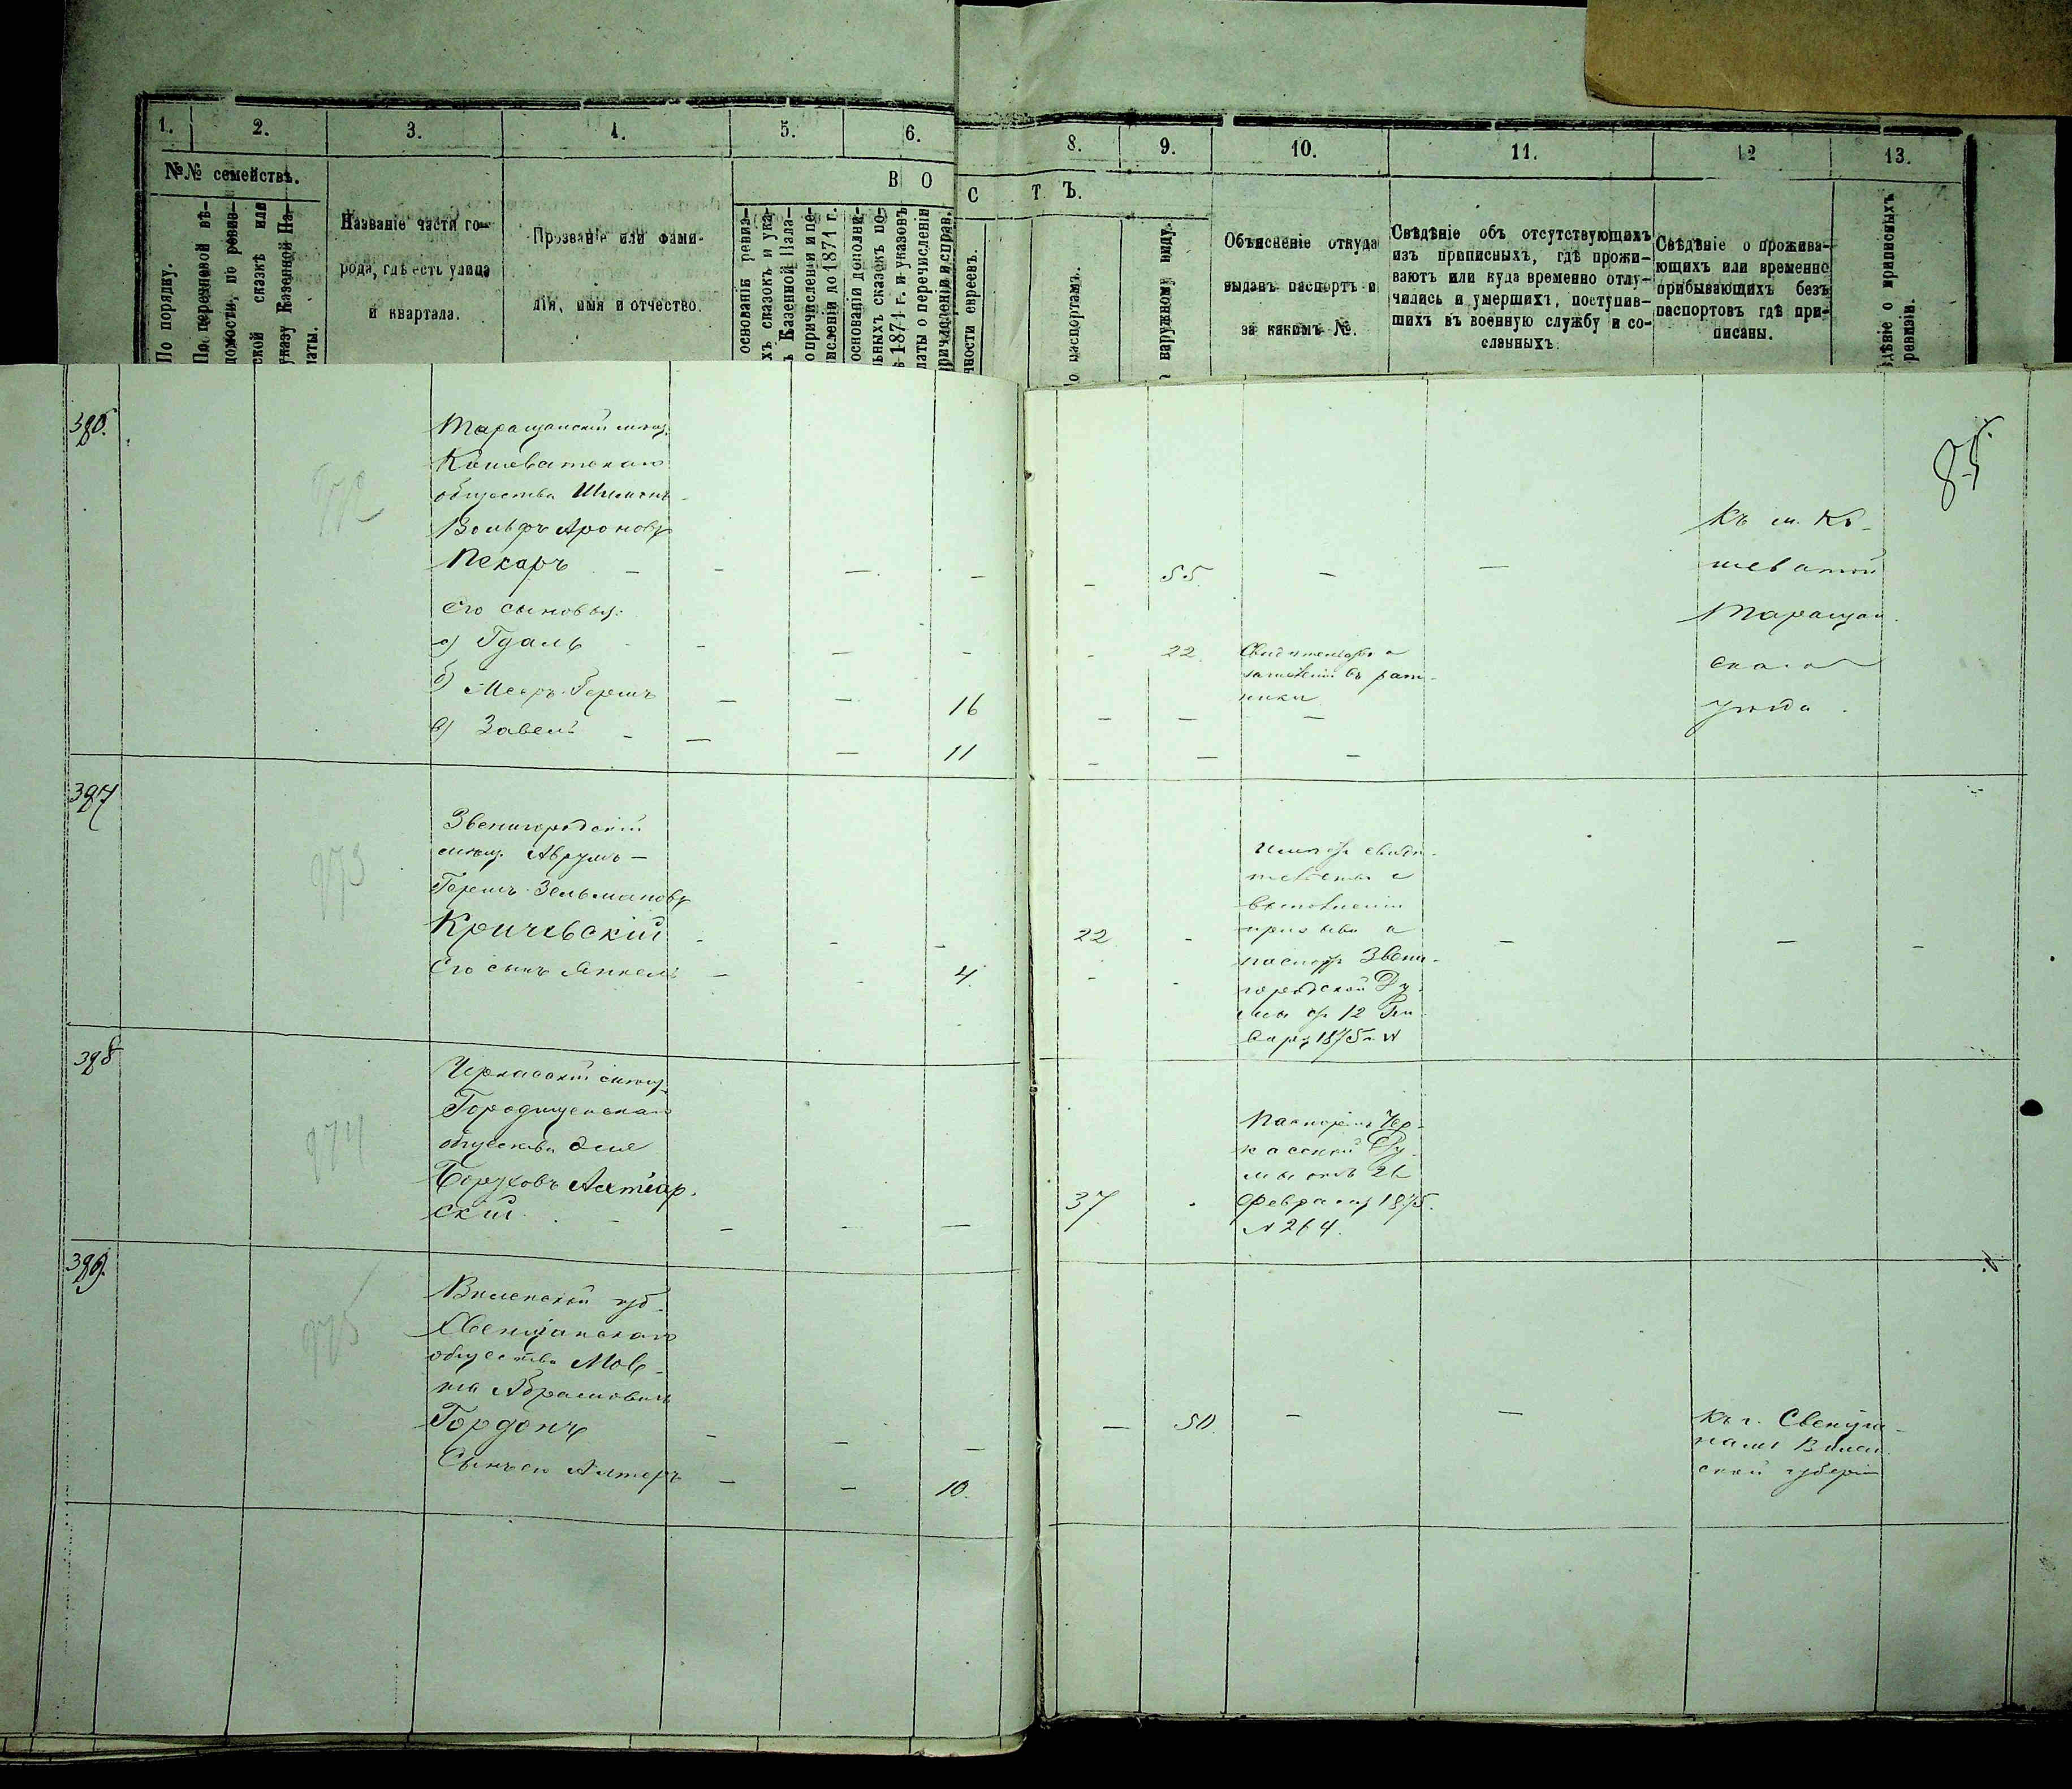 1.
2.
3.
4.
5.
6.
8.
9.
10.
11.
12
13.
№№ семействъ.
По порядку.
По перечневой вѣ-
домости, по ревиз-
ской сказкѣ или
указу Казенной Па-
латы.
Названіе части го-
рода, гдѣ есть улица
и квартала.
Прозваніе или фами-
лія, имя и отчество.
В О
С Т Ъ.
основаніи ревиз-
хъ сказокъ и ука-
ъ Казенной Пала-
о причисленіи и пе-
ислении до 1871 г.
основаніи дополни-
льныхъ сказокъ по-
ѣ 1871 г. и указовъ
латы о перечисленіи
причисленіи и справ.
чности евреевъ.
о паспортамъ.
наружному виду.
Объясненіе откуда
выданъ паспортъ и
за какимъ №.
Свѣдѣніе объ отсутствующихъ
изъ приписныхъ, гдѣ прожи-
ваютъ или куда временно отлу-
чились и умершихъ, поступив-
шихъ въ военную службу и со-
сланныхъ.
Свѣдѣніе о прожива-
ющихъ или временно
прибывающихъ безъ
паспортовъ гдѣ при-
писаны.
дѣніе о приписныхъ
ревизіи.
85
386.
972
Таращанскій мѣщ.
Кошеватскаго
общества
Вольфъ Ароновъ
Пекаръ — — — — — 55 — —
Его сыновья:
а) Гдаль - - - - - 22.
б) Мееръ-Гершъ — — 16 — — —
в) Завель - — — 11 — — —
Свидѣтельство о
зачисленіи въ рат-
ники
Къ м. Ко-
шеватой
Таращан-
скаго
уѣзда.
387
973
Звенигородскій
мѣщ. Аврумъ —
Гершъ Зельмановъ
Кричевскій - - - 22 - — — -
Его сынъ Янкель — - 4. - -
свидѣ-
тельство о
выполненіи
призыва и
паспортъ Звени-
городской Ду-
мы отъ 12 Ян-
варя 1875 г. №
388
974
Черкасскій мѣщ.
Городищенскаго
общества
Боруховъ Ахтіар-
скій — — — — 37 -
Паспортъ Чер-
касской Ду-
мы отъ 26
Февраля 1875.
№ 264.
389.
975
Виленской губ.
Свенцянскаго
общества Мов-
ша Абрамовичъ
Гордонъ — — — — 50. — —
Сынъ его Алтеръ — — 10.
Къ г. Свенця-
намъ Вилен-
ской губерніи